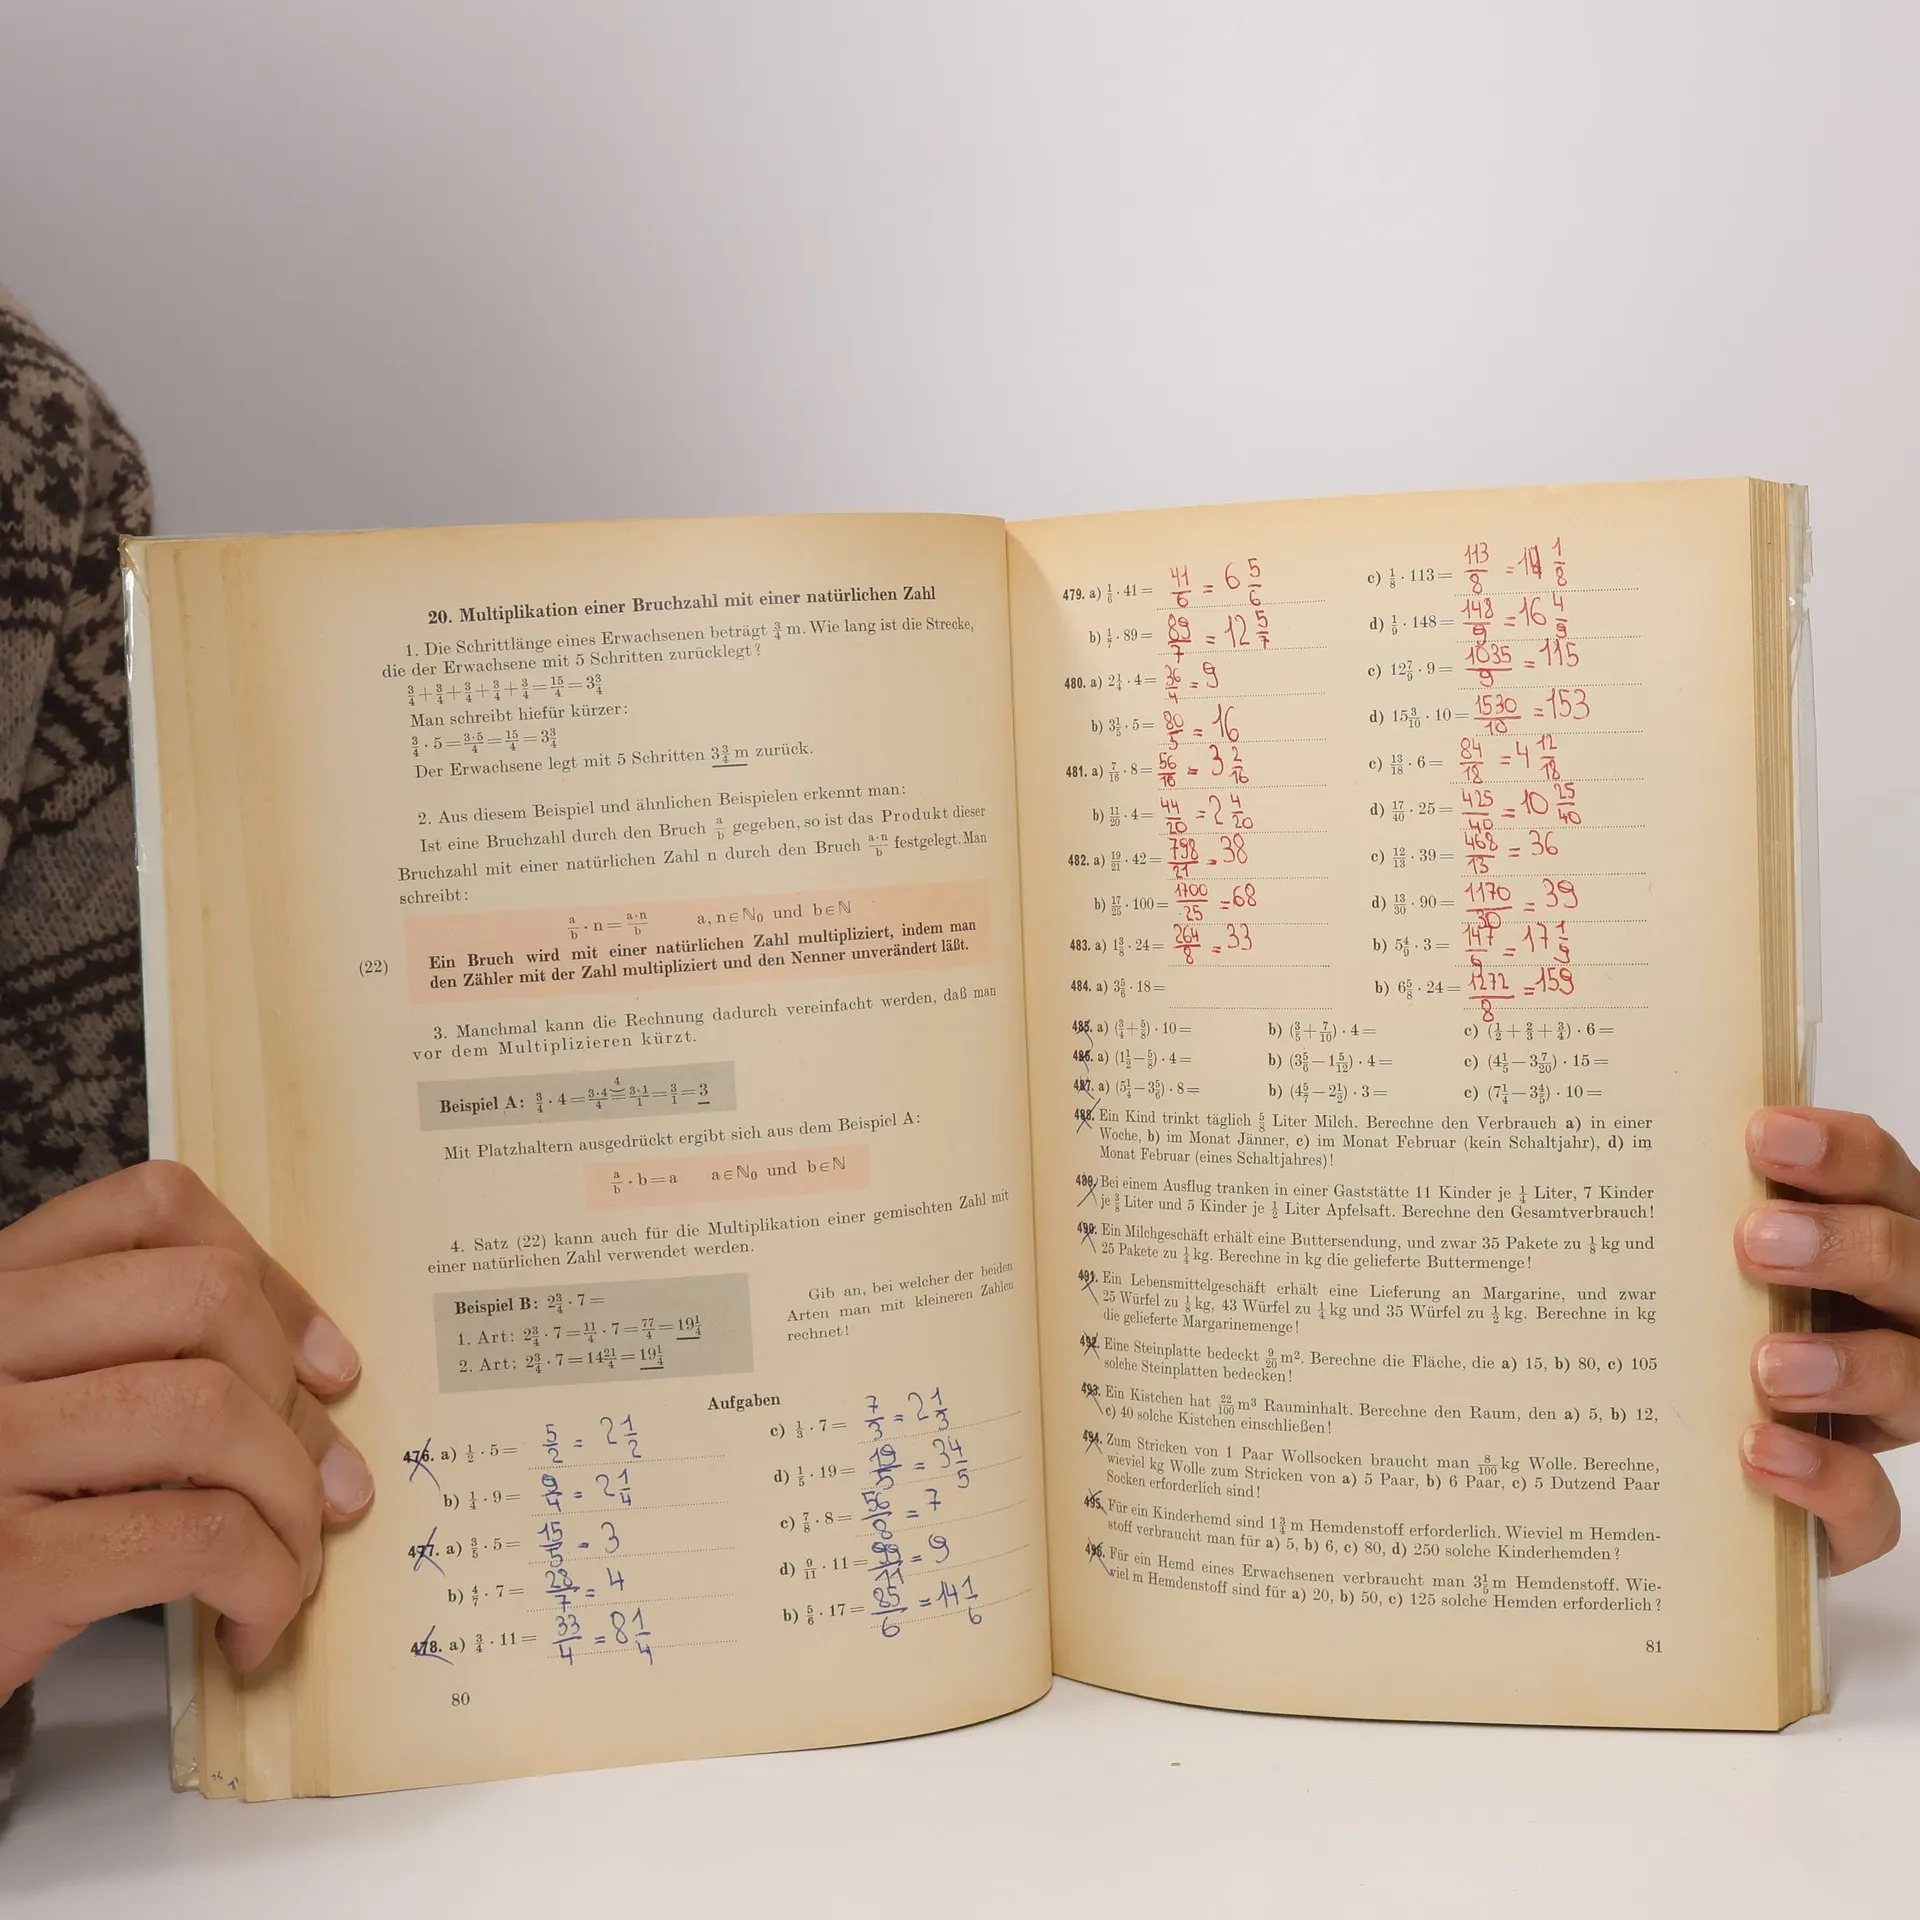 20. Multiplikation einer Bruchzahl mit einer natürlichen Zahl
1. Die Schrittlänge eines Erwachsenen beträgt 3/4 m. Wie lang ist die Strecke,
die der Erwachsene mit 5 Schritten zurücklegt?
3/4 + 3/4 + 3/4 + 3/4 + 3/4 = 15/4 = 3 3/4
Man schreibt hiefür kürzer:
3/4 · 5 = 3·5/4 = 15/4 = 3 3/4
Der Erwachsene legt mit 5 Schritten 3 3/4 m zurück.
2. Aus diesem Beispiel und ähnlichen Beispielen erkennt man:
Ist eine Bruchzahl durch den Bruch a/b gegeben, so ist das Produkt dieser
Bruchzahl mit einer natürlichen Zahl n durch den Bruch a·n/b festgelegt. Man
schreibt:
a/b · n = a·n/b a, n ∈ ℕ₀ und b ∈ ℕ
(22) Ein Bruch wird mit einer natürlichen Zahl multipliziert, indem man
den Zähler mit der Zahl multipliziert und den Nenner unverändert läßt.
3. Manchmal kann die Rechnung dadurch vereinfacht werden, daß man
vor dem Multiplizieren kürzt.
Beispiel A: 3/4 · 4 = 3·4/4 4= 3·1/1 = 3/1 = 3
Mit Platzhaltern ausgedrückt ergibt sich aus dem Beispiel A:
a/b · b = a a ∈ ℕ₀ und b ∈ ℕ
4. Satz (22) kann auch für die Multiplikation einer gemischten Zahl mit
einer natürlichen Zahl verwendet werden.
Beispiel B: 2 3/4 · 7 =
1. Art: 2 3/4 · 7 = 11/4 · 7 = 77/4 = 19 1/4
2. Art: 2 3/4 · 7 = 14 21/4 = 19 1/4
Gib an, bei welcher der beiden
Arten man mit kleineren Zahlen
rechnet!
Aufgaben
476. a) 1/2 · 5 = 5/2 = 2 1/2 c) 1/3 · 7 = 7/3 = 2 1/3
b) 1/4 · 9 = 9/4 = 2 1/4 d) 1/5 · 19 = 19/5 = 3 4/5
477. a) 3/5 · 5 = 15/5 = 3 c) 7/8 · 8 = 56/8 = 7
b) 4/7 · 7 = 28/7 = 4 d) 9/11 · 11 = 99/11 = 9
478. a) 3/4 · 11 = 33/4 = 8 1/4 b) 5/6 · 17 = 85/6 = 14 1/6
80
479. a) 1/6 · 41 = 41/6 = 6 5/6 c) 1/8 · 113 = 113/8 = 14 1/8
b) 1/7 · 89 = 89/7 = 12 5/7 d) 1/9 · 148 = 148/9 = 16 4/9
480. a) 2 1/4 · 4 = 36/4 = 9 c) 12 7/9 · 9 = 1035/9 = 115
b) 3 1/5 · 5 = 80/5 = 16 d) 15 3/10 · 10 = 1530/10 = 153
481. a) 7/16 · 8 = 56/16 = 3 2/16 c) 13/18 · 6 = 84/18 = 4 12/18
b) 11/20 · 4 = 44/20 = 2 4/20 d) 17/40 · 25 = 425/40 = 10 25/40
482. a) 19/21 · 42 = 798/21 = 38 c) 12/13 · 39 = 468/13 = 36
b) 17/25 · 100 = 1700/25 = 68 d) 13/30 · 90 = 1170/30 = 39
483. a) 1 3/8 · 24 = 264/8 = 33 b) 5 4/9 · 3 = 147/9 = 17 1/9
484. a) 3 5/6 · 18 = b) 6 5/8 · 24 = 1272/8 = 159
485. a) (3/4 + 5/8) · 10 = b) (3/5 + 7/10) · 4 = c) (1/2 + 2/3 + 3/4) · 6 =
486. a) (1 1/2 − 5/8) · 4 = b) (3 5/6 − 1 5/12) · 4 = c) (4 1/5 − 3 7/20) · 15 =
487. a) (5 1/4 − 3 5/6) · 8 = b) (4 5/7 − 2 1/2) · 3 = c) (7 1/4 − 3 4/5) · 10 =
488. Ein Kind trinkt täglich 5/8 Liter Milch. Berechne den Verbrauch a) in einer
Woche, b) im Monat Jänner, c) im Monat Februar (kein Schaltjahr), d) im
Monat Februar (eines Schaltjahres)!
489. Bei einem Ausflug tranken in einer Gaststätte 11 Kinder je 1/4 Liter, 7 Kinder
je 3/8 Liter und 5 Kinder je 1/2 Liter Apfelsaft. Berechne den Gesamtverbrauch!
490. Ein Milchgeschäft erhält eine Buttersendung, und zwar 35 Pakete zu 1/8 kg und
25 Pakete zu 1/4 kg. Berechne in kg die gelieferte Buttermenge!
491. Ein Lebensmittelgeschäft erhält eine Lieferung an Margarine, und zwar
25 Würfel zu 1/8 kg, 43 Würfel zu 1/4 kg und 35 Würfel zu 1/2 kg. Berechne in kg
die gelieferte Margarinemenge!
492. Eine Steinplatte bedeckt 9/20 m². Berechne die Fläche, die a) 15, b) 80, c) 105
solche Steinplatten bedecken!
493. Ein Kistchen hat 22/100 m³ Rauminhalt. Berechne den Raum, den a) 5, b) 12,
c) 40 solche Kistchen einschließen!
494. Zum Stricken von 1 Paar Wollsocken braucht man 8/100 kg Wolle. Berechne,
wieviel kg Wolle zum Stricken von a) 5 Paar, b) 6 Paar, c) 5 Dutzend Paar
Socken erforderlich sind!
495. Für ein Kinderhemd sind 1 3/4 m Hemdenstoff erforderlich. Wieviel m Hemden-
stoff verbraucht man für a) 5, b) 6, c) 80, d) 250 solche Kinderhemden?
496. Für ein Hemd eines Erwachsenen verbraucht man 3 1/5 m Hemdenstoff. Wie-
viel m Hemdenstoff sind für a) 20, b) 50, c) 125 solche Hemden erforderlich?
81